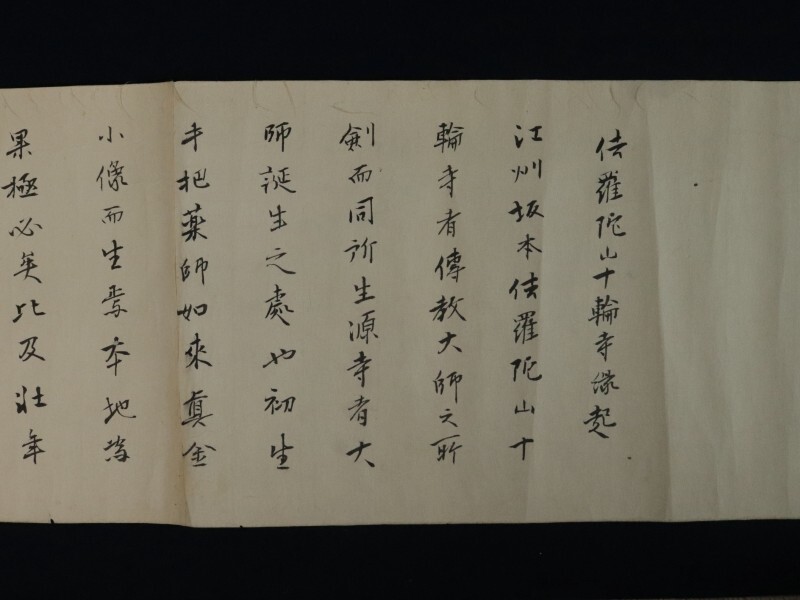 佉羅陀山十輪寺縁起
江州坂本佉羅陀山十
輪寺者傳教大師之所
剣而同所生源寺者大
師誕生之處也初生
手把薬師如來真金
小像而生焉本地
果極必矣比及壯年